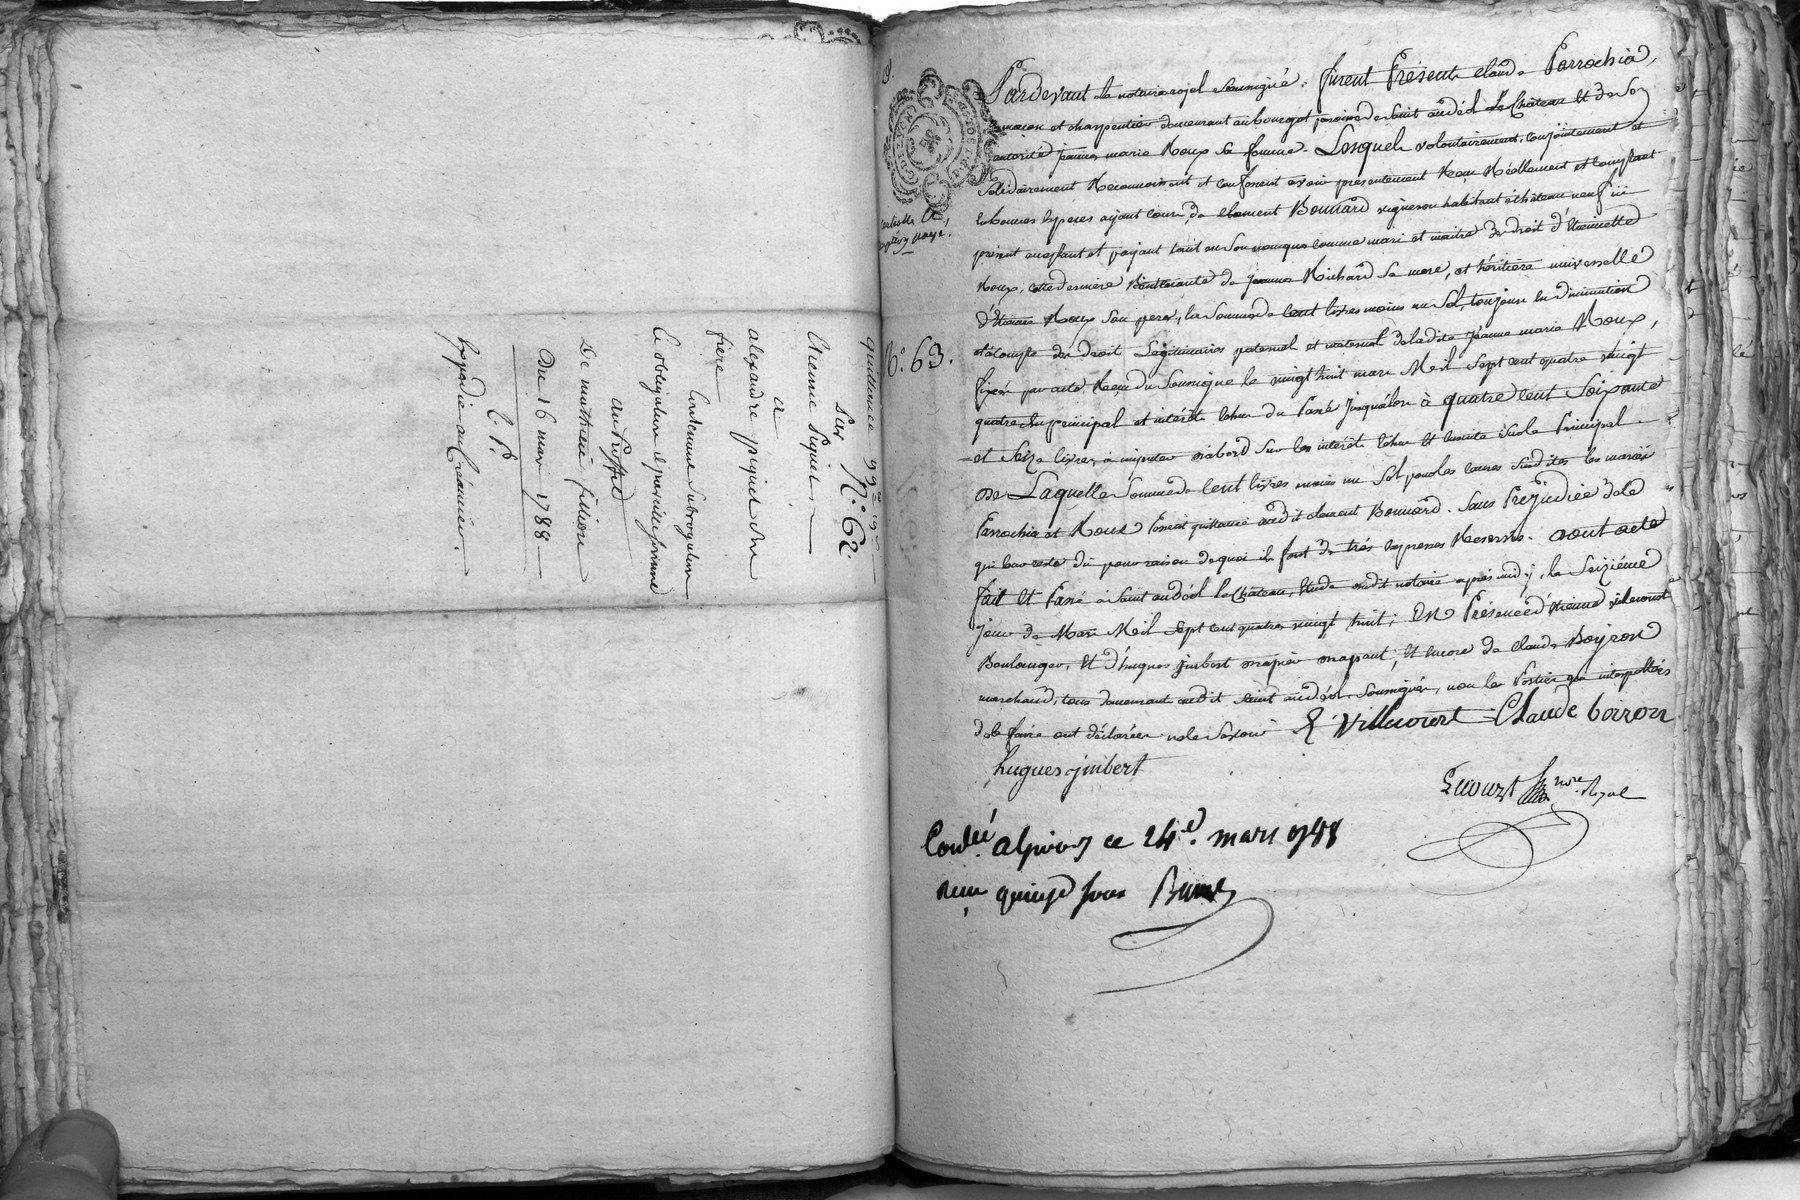 quittance
Par N.° 62.
Etienne piquet
à
alexandre piquet son
frere
Contenant Subrogation
au Proffit
De mathieu fillion
Du 16 mars 1788
Expediée au Créancier.
N.° 63.
Pardevant Le notaire royal Soussigné. furent Présents claude Parrochia,
maçon et charpentier demeurant au bourg et paroisse de saint andéol Le Château Et de Son
autorité jeanne marie Roux Sa femme. Lesquels volontairement, conjointement et
Solidairement Reconnoissent et confessent avoir présentement Reçu Réellement et comptant
en bonnes Especes ayant cours, de clement Bonnard vigneron habitant à château neuf ici
présent acceptant et payant tant en Son nom que comme mari et maitre des droits d'Etiennette
Roux, cette derniere héritiere de jeanne Richard Sa mere, et héritière universelle
d'Etienne Roux Son pere, la Somme de Cent livres moins un Sol, toujours En diminution
et à compte des droits Légitimaires paternel et maternel de ladite jeanne marie Roux,
fixés par acte Reçu du Soussigné le vingt huit mars Mil Sept cent quatre vingt
quatre En principal et intérêts Echus du Passé jusqu'alors à quatre Cent Soixante
et Seize livres, à imputer d'abord Sur les intérêts Echus Et Ensuite Sur le Principal.
De Laquelle Somme de Cent livres moins un Sol pour les causes Susdites les mariés
Parrochia et Roux Passent quittance audit clement Bonnard. Sans Préjudice de ce
qui leur reste dû pour raison de quoi ils font de très Expresses Reserves. Dont acte
fait Et Passé à Saint andéol le Château, Etude dudit notaire après midy, le Seizième
jour de Mars Mil Sept cent quatre vingt huit; En Présence d'Etienne villecourt
Boulanger, Et d'hugues jimbert, Et Encore de Claude Boyron
marchand, tous demeurant audit Saint andéol Soussignés, non les Parties qui interpellées
de le faire ont déclarées ne le Savoir E villecourt Claude boiron
hugues jimbert
not.re Royal
Con.lé a givors ce 24.e mars 1788
reçu quinze sous